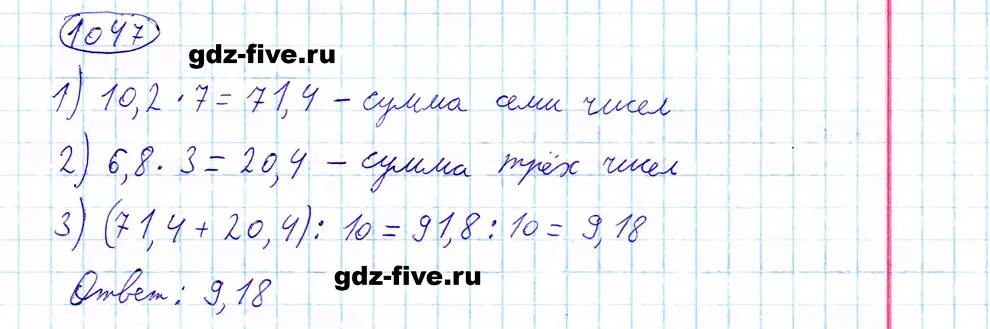 1047
gdz-five.ru
1) 10,2 · 7 = 71,4 – сумма семи чисел
2) 6,8 · 3 = 20,4 – сумма трёх чисел
3) (71,4 + 20,4) : 10 = 91,8 : 10 = 9,18
gdz-five.ru
Ответ: 9,18